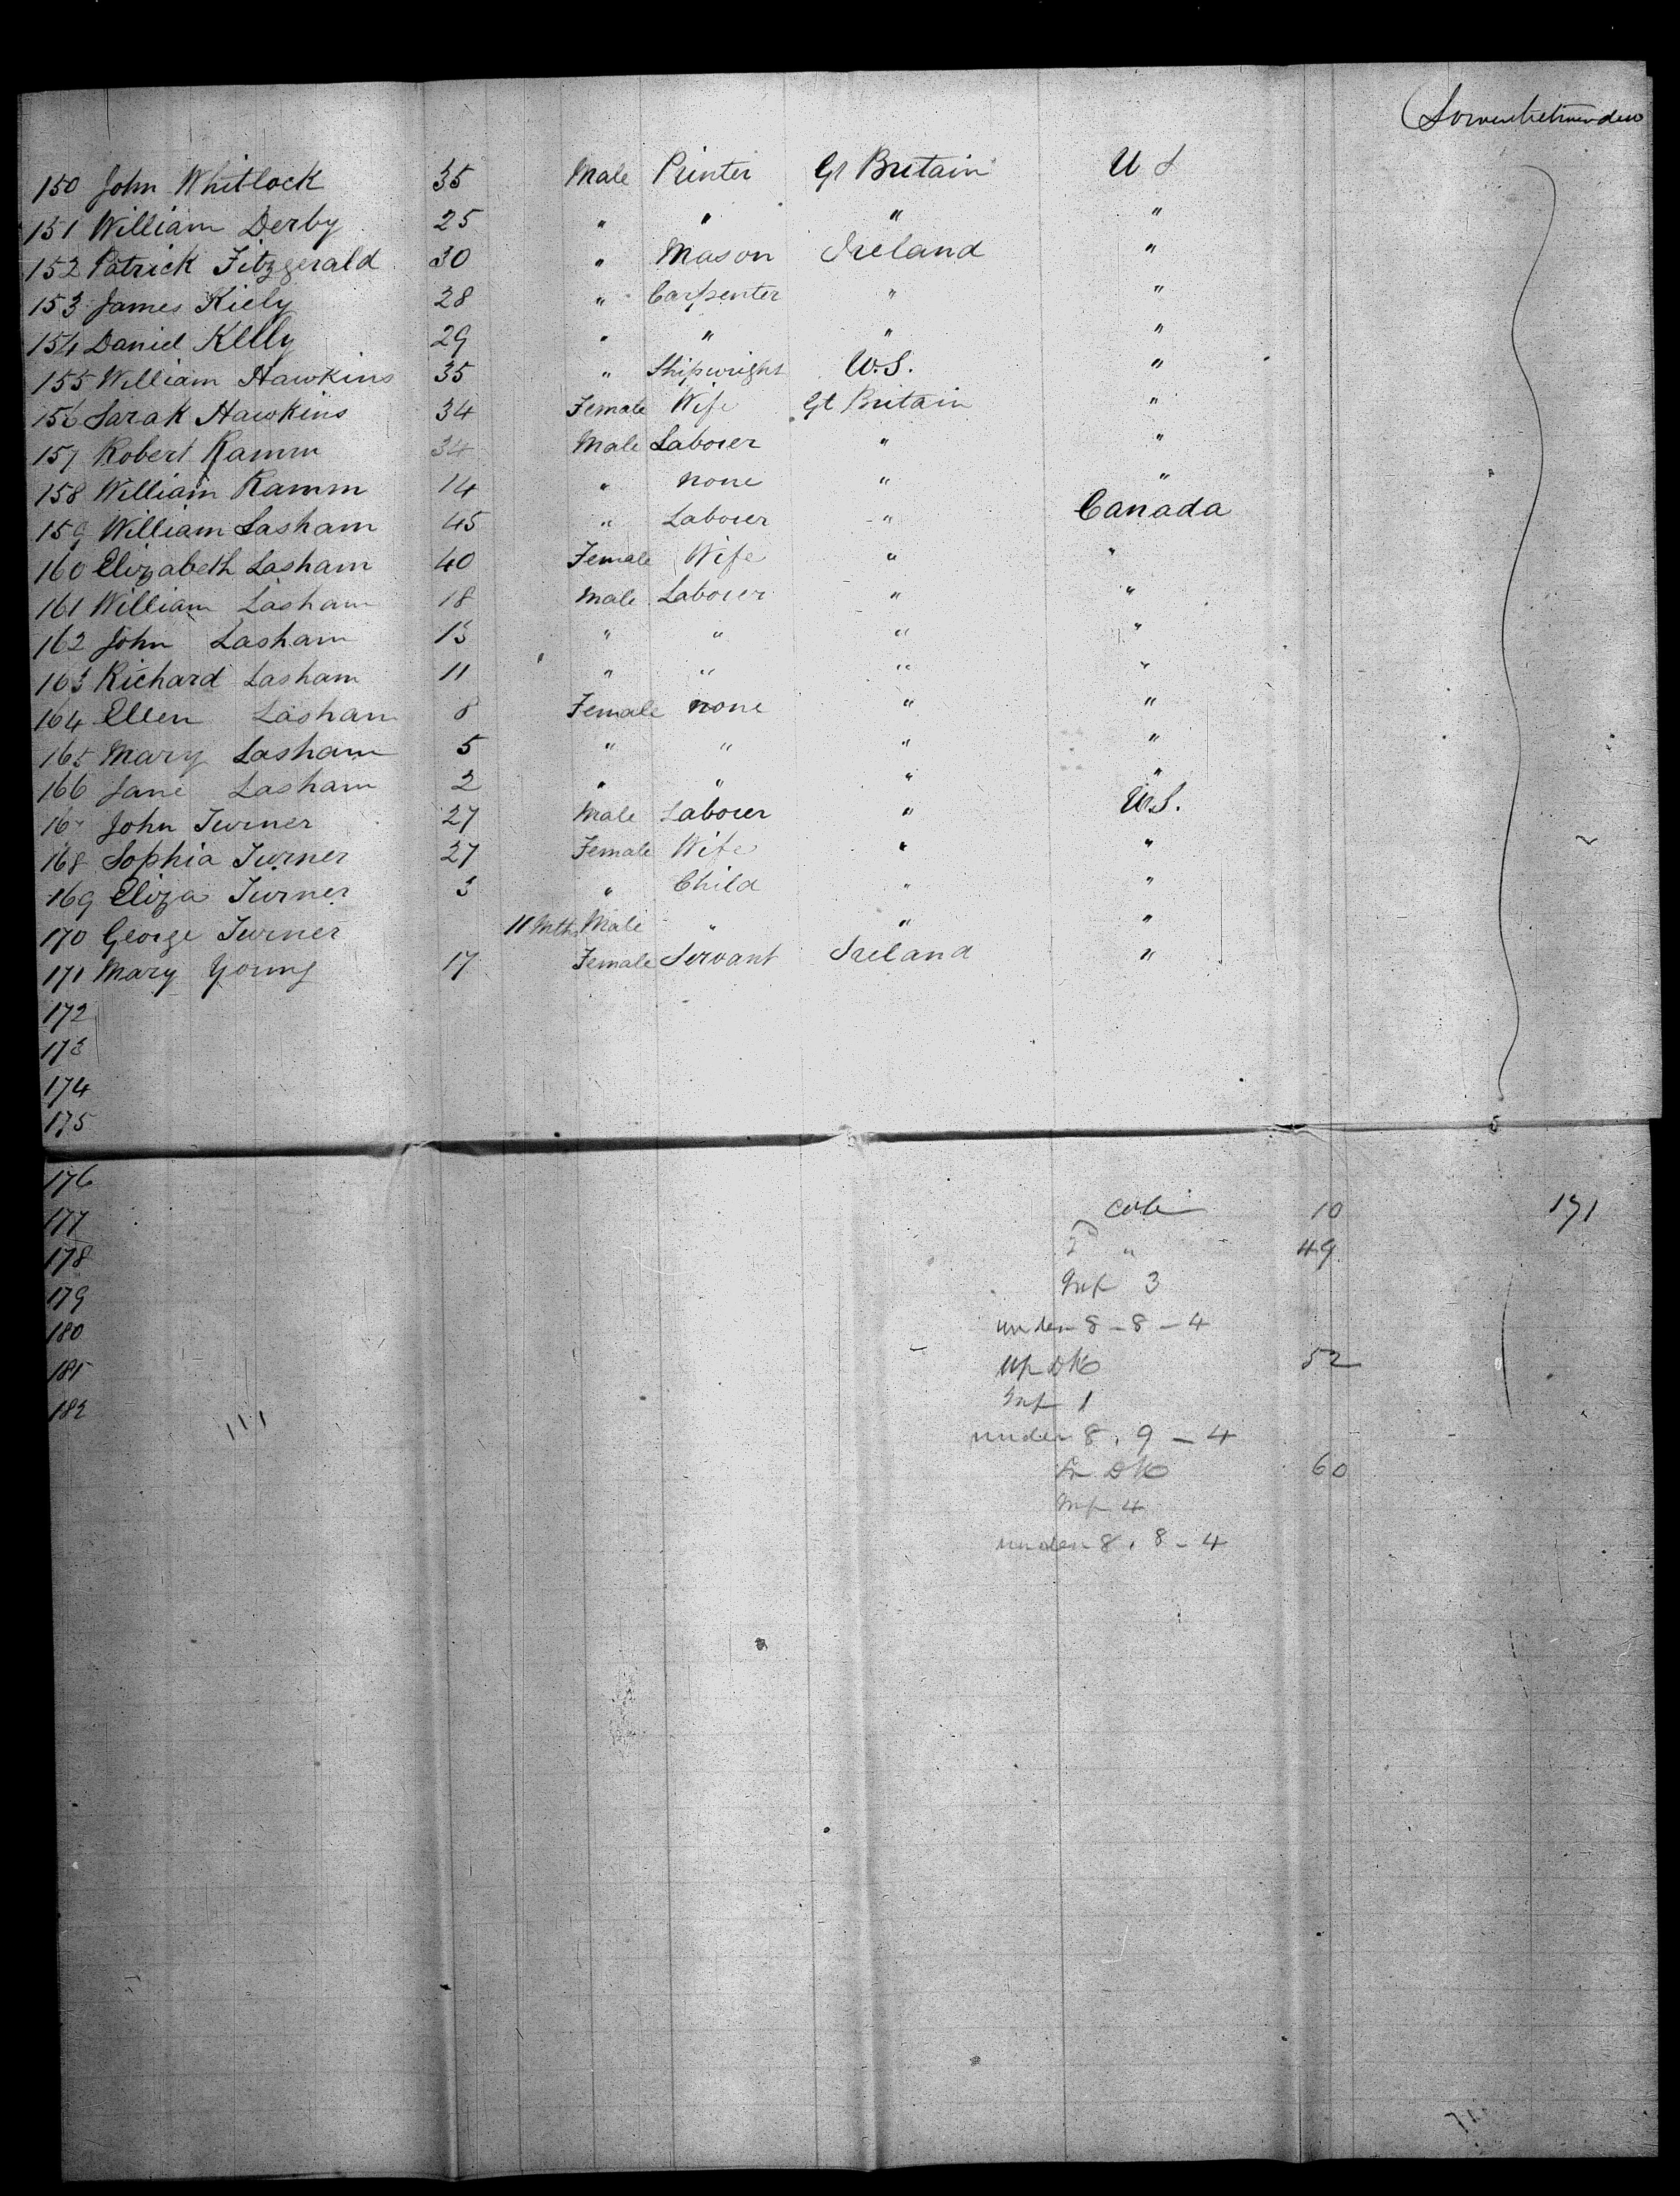 150 John Whitlock 35 Male Printer Gt Britain U S
151 William Derby 25 " " " "
152 Patrick Fitzgerald 30 " Mason Ireland "
153 James Kiely 28 " Carpenter " "
154 Daniel Kelly 29 " " " "
155 William Hawkins 35 " Shipwright U.S. "
156 Sarah Hawkins 34 Female Wife Gt Britain "
157 Robert Ramm 34 Male Laborer " "
158 William Ramm 14 " none " "
159 William Lasham 45 " Laborer " Canada
160 Elizabeth Lasham 40 Female Wife " "
161 William Lasham 18 Male Laborer " "
162 John Lasham 13 " " " "
163 Richard Lasham 11 " " " "
164 Ellen Lasham 8 Female none " "
165 Mary Lasham 5 " " " "
166 Jane Lasham 2 " " " "
167 John Turner 27 Male Laborer " U.S.
168 Sophia Turner 27 Female Wife " "
169 Eliza Turner 3 " Child " "
170 George Turner 11 Mths Male " " "
171 Mary Young 17 Female Servant Ireland "
172
173
174
175
176
177 Cabin 10 171
178 2 " 49
179 Inf 3
180 under 8 - 8 - 4
181 Up Dk 52
182 Inf 1
under 8 . 9 - 4
Dk 60
Inf 4
under 8 . 8 - 4